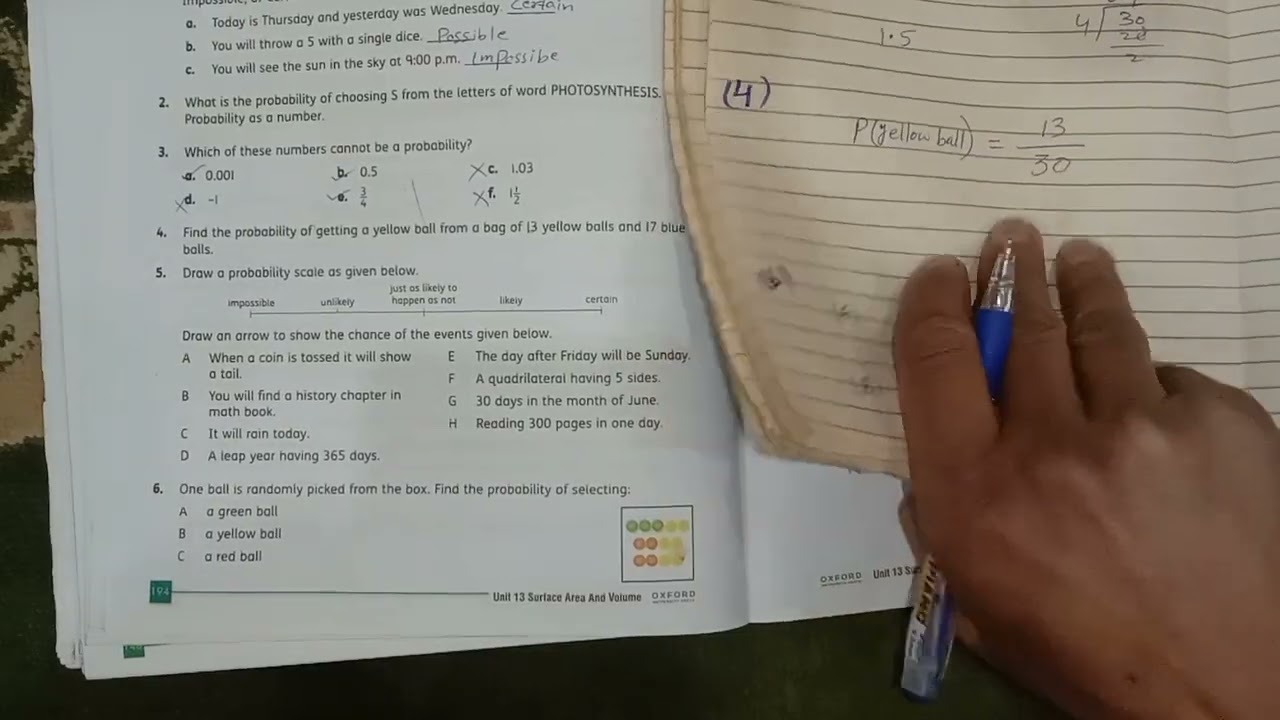 a. Today is Thursday and yesterday was Wednesday. Certain
b. You will throw a 5 with a single dice. Possible
c. You will see the sun in the sky at 9:00 p.m. Impossibe
2. What is the probability of choosing S from the letters of word PHOTOSYNTHESIS.
Probability as a number.
3. Which of these numbers cannot be a probability?
a. 0.001 b. 0.5 c. 1.03
d. -1 e. 3/4 f. 1 1/2
4. Find the probability of getting a yellow ball from a bag of 13 yellow balls and 17 blue
balls.
5. Draw a probability scale as given below.
impossible unlikely just as likely to happen as not likely certain
Draw an arrow to show the chance of the events given below.
A When a coin is tossed it will show
a tail.
B You will find a history chapter in
math book.
C It will rain today.
D A leap year having 365 days.
E The day after Friday will be Sunday.
F A quadrilateral having 5 sides.
G 30 days in the month of June.
H Reading 300 pages in one day.
6. One ball is randomly picked from the box. Find the probability of selecting:
A a green ball
B a yellow ball
C a red ball
194 Unit 13 Surface Area And Volume OXFORD
UNIVERSITY PRESS
1.5
4 30
2
(4)
P(yellow ball) = 13/30
OXFORD Unit 13